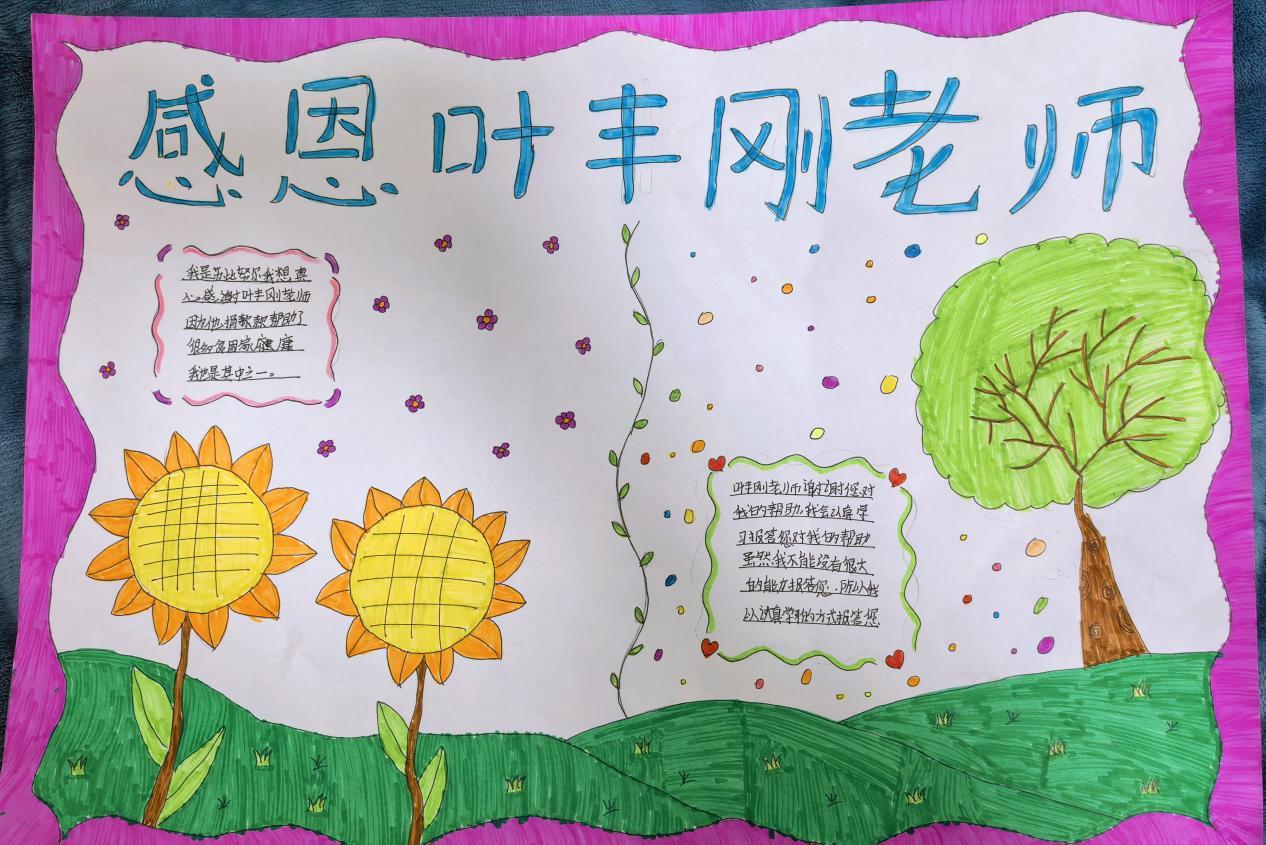 感恩叶丰刚老师
我是苏比努尔我想真
心感谢叶丰刚老师
因为他捐款帮助了
很多名困家健康
我也是其中之一。
叶丰刚老师谢谢您对
我的帮助,我会认真学
习报答您对我的帮助
虽然我不能没有很大
的能力报答您,所以我
以认真学习的方式报答您